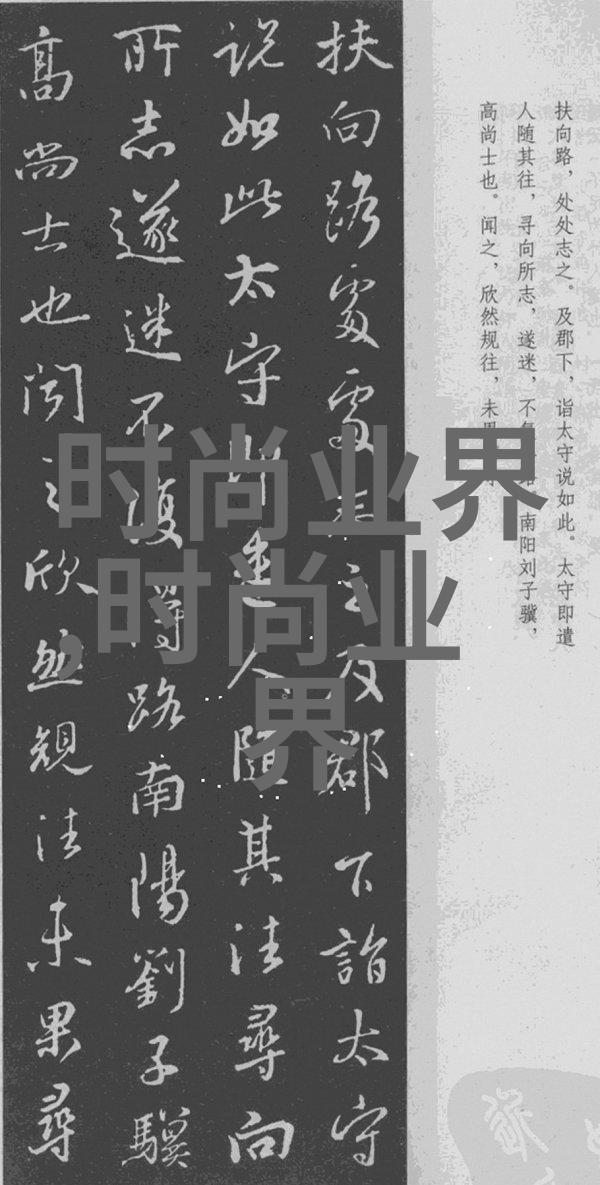 扶向路處處志之及郡下詣太守
说如此太守即遣人随其往尋向
所志遂迷不復得路南陽劉子驥
高尚士也闻之欣然规往未果尋
扶向路，处处志之。及郡下，诣太守说如此。太守即遣
人随其往，寻向所志，遂迷，不复路南阳刘子骥，
高尚士也。闻之，欣然规往，未果
时尚业界
,时尚业
界